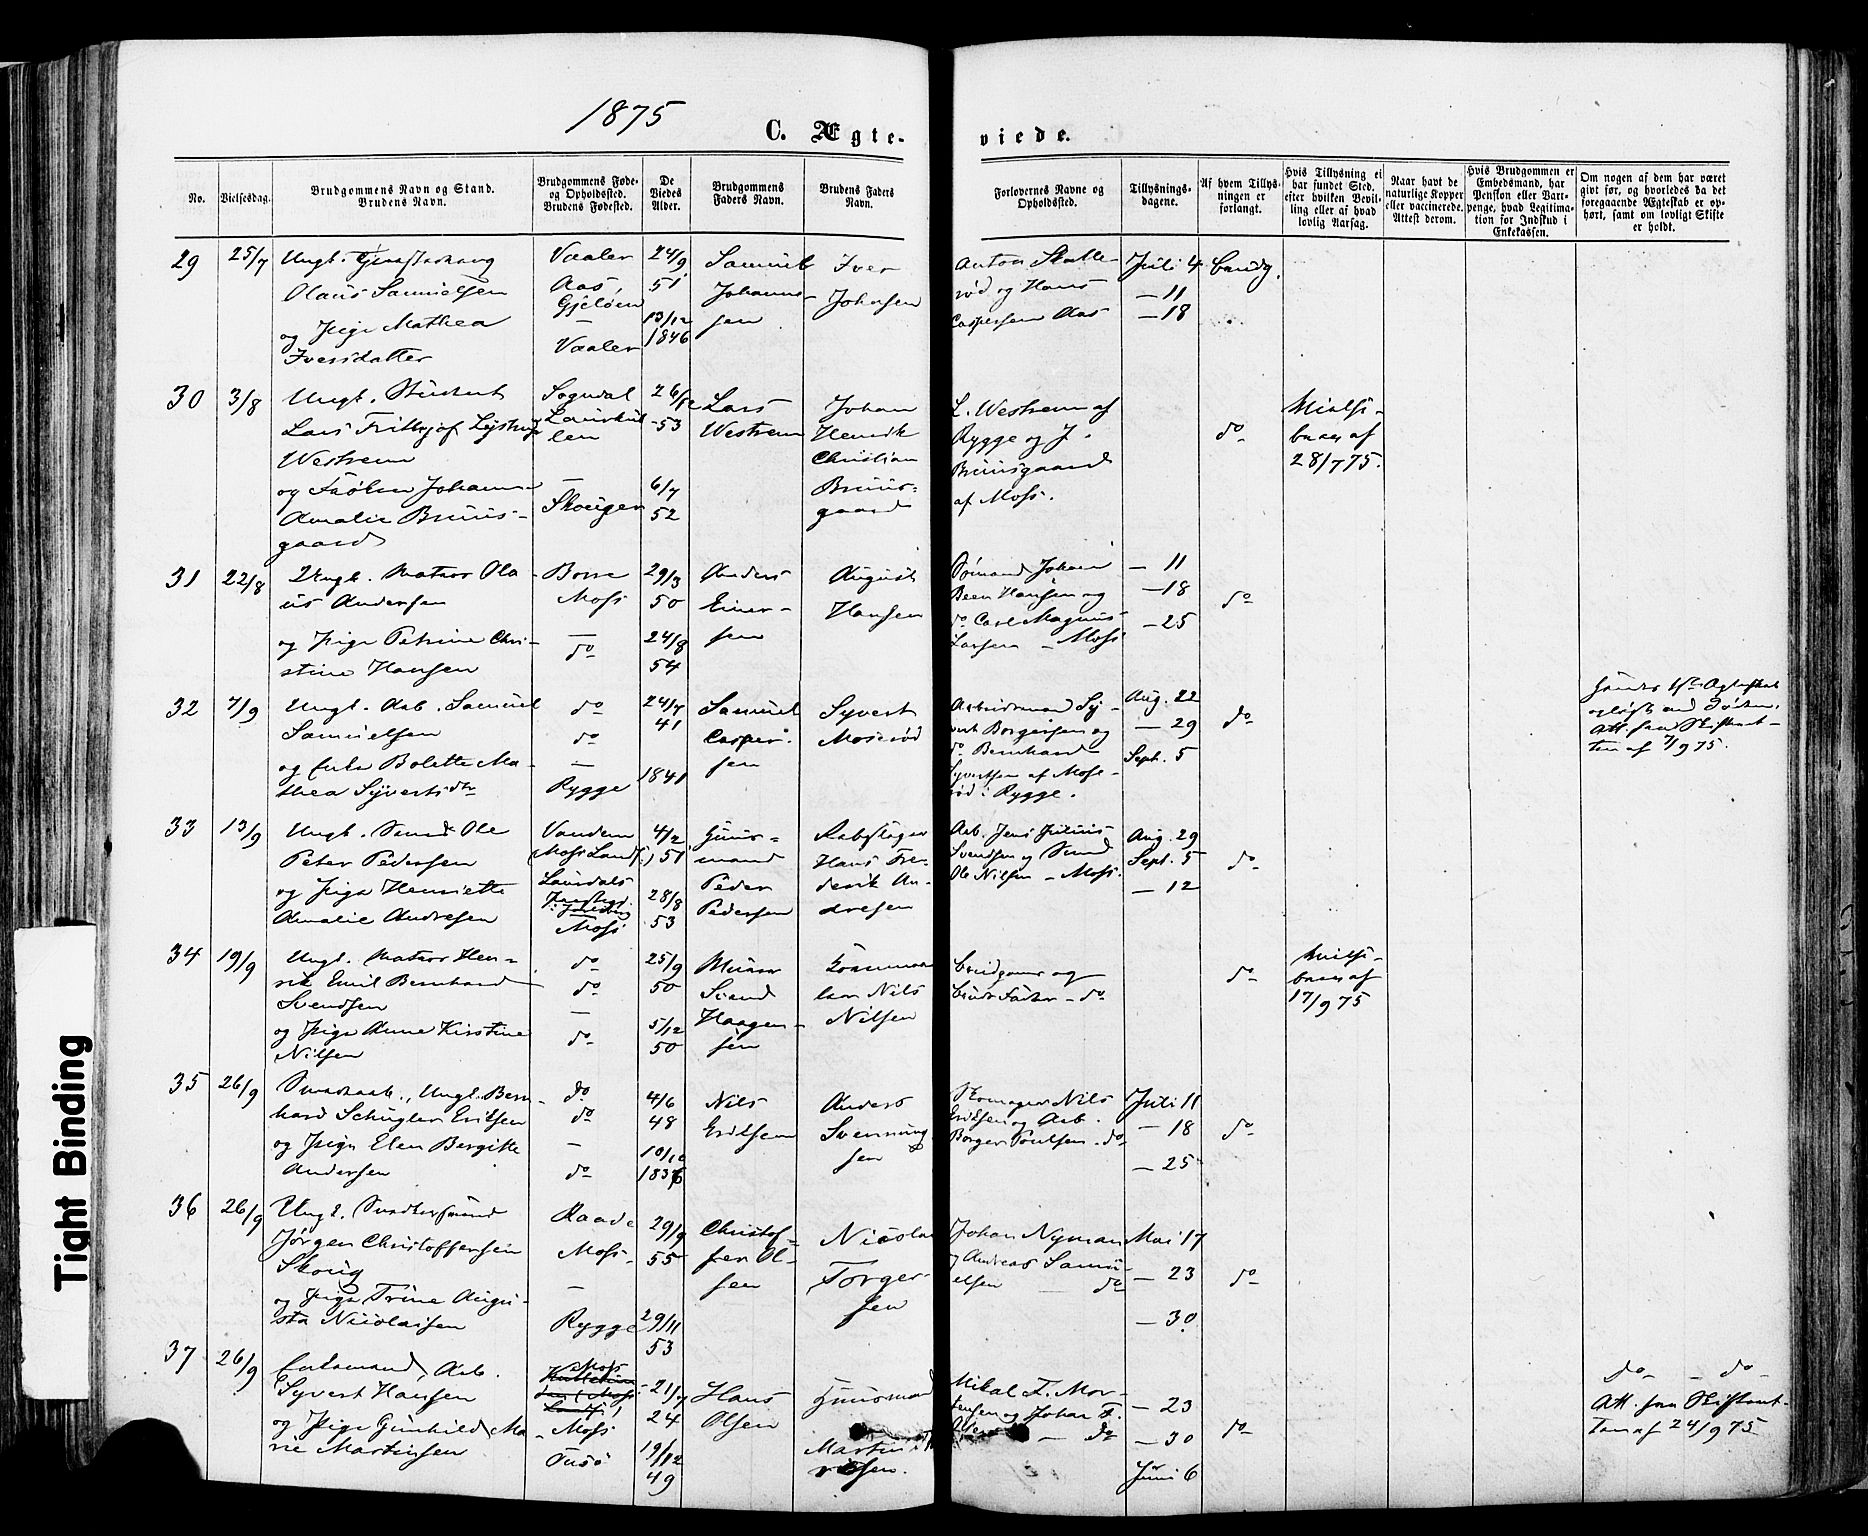 1875
C. Ægte-
viede.
No.
Vielsesdag.
Brudgommens Navn og Stand.
Brudens Navn.
Brudgommens Føde-
og Opholdssted.
Brudens Fødested.
De
Viedes
Alder.
Brudgommens
Faders Navn.
Brudens Faders
Navn.
Forlovernes Navne og
Opholdssted.
Tillysnings-
dagene.
Af hvem Tillys-
ningen er
forlangt.
Hvis Tillysning ei
har fundet Sted,
efter hvilken Bevil-
ling eller af hvad
lovlig Aarsag.
Naar havt de
naturlige Kopper
eller vaccinerede.
Attest derom.
Hvis Brudgommen er
Embedsmand, har
Pension eller Vart-
penge, hvad Legitima-
tion for Indskud i
Enkekassen.
Om nogen af dem har været
givt før, og hvorledes da det
foregaaende Ægteskab er op-
hørt, samt om lovligt Skifte
er holdt.
29 25/7 Ungk.
Olaus Samuelsen
og Pige Mathea
Iversdatter
Vaaler
Aas,
Gjeløen
—
Vaaler
24/9
51
13/12
1846
Samuel
Johanns-
sen
Iver
Johnsen
Anton Skalle-
rød og Hans
Caspersen Aas
Juli 4
— 11
— 18
Brudg.
30 3/8 Ungk. Student
Lars Frithjof Lystrup
Westrem
og Frøken Johanne
Amalie Bruus-
gaard
Sogndal
—
Skouger
26/12
53
6/7
52
Lars
Westrem
Johan
Henrik
Christian
Bruus-
gaard
L. Westrem af
Rygge og J.
Bruusgaard
af Moss.
do
af
28/7 75.
31 22/8 Ungk. Matros Ola-
us Andersen
og Pige Petrine Chri-
stine Hansen
Borre
Moss
—
do
29/3
50
24/8
54
Anders
Einer-
sen
August
Hansen
Sømand Johan
Been Hansen og
do Carl Magnus
Larsen – Moss
— 11
— 18
— 25
do
32 7/9 Ungk. Arb. Samuel
Samuelsen
og Enke Bolette Ma-
thea Syvertsdtr
do
do
—
Rygge
24/7
41
1841
Samuel
Casper-
sen
Syvert
Moserød
Arbeidsmand Sy-
vert Borgersen og
do Bernhard
Syvertsen af Mose-
rød i Rygge.
Aug. 22
— 29
Sept. 5
do
Hendes 1ste Ægteskab
opløst ved Døden.
Att. fra Skifteret-
ten af 7/9 75.
33 13/9 Ungk. Smed Ole
Peter Pedersen
og Pige Henriette
Amalie Andresen
Vandem
(Moss Lands.)
Laurdals
Moss
4/2
51
28/8
53
Huus-
mand
Peder
Pedersen
Rebslager
Hans Fre-
derik An-
dresen
Arb. Jens Julius
Svendsen og Smed
Ole Nilsen – Moss.
Aug. 29
Sept. 5
— 12
do
34 19/9 Ungk. Matros Hen-
rik Emil Bernhard
Svendsen
og Pige Anne Kirstine
Nilsen
do
do
—
do
25/9
50
5/12
50
Murer
Svend
Haagen-
sen
Nils
Nilsen
Brudgom og
Bruds Fader – do
do
af
17/9 75
35 26/9 Smedearb., Ungk. Bern-
hard Schügler Eriksen
og Pige Elen Bergitte
Andersen
do
do
—
do
4/6
48
10/12
1836
Nils
Eriksen
Anders
Svennung-
sen
Skomager Nils
Eriksen og Arb.
Borger Poulsen. do
Juli 11
— 18
— 25
do
36 26/9 Ungk. Smedsvend
Jørgen Christoffersen
Skoug
og Pige Trine Augu-
sta Nicolaisen
Raade
Moss
—
Rygge
29/9
55
29/11
53
Christof-
fer Ol-
sen
Nicolai
Torger-
sen
Johan Nyman
og Andreas Samu-
elsen do
Mai 17
— 23
— 30
do
37 26/9 Enkemand, Arb.
Syvert Hansen
og Pige Gunhild Ma-
rie Martinsen
Moss
Moss
21/7
24
19/12
49
Hans
Olsen
Huusmand
Martin
Mikal F. Mor-
tensen og Johan F.
— do
— 23
— 30
Juni 6
do
do – do
Att. fra Skifteret-
ten af 24/9 75
Tight Binding